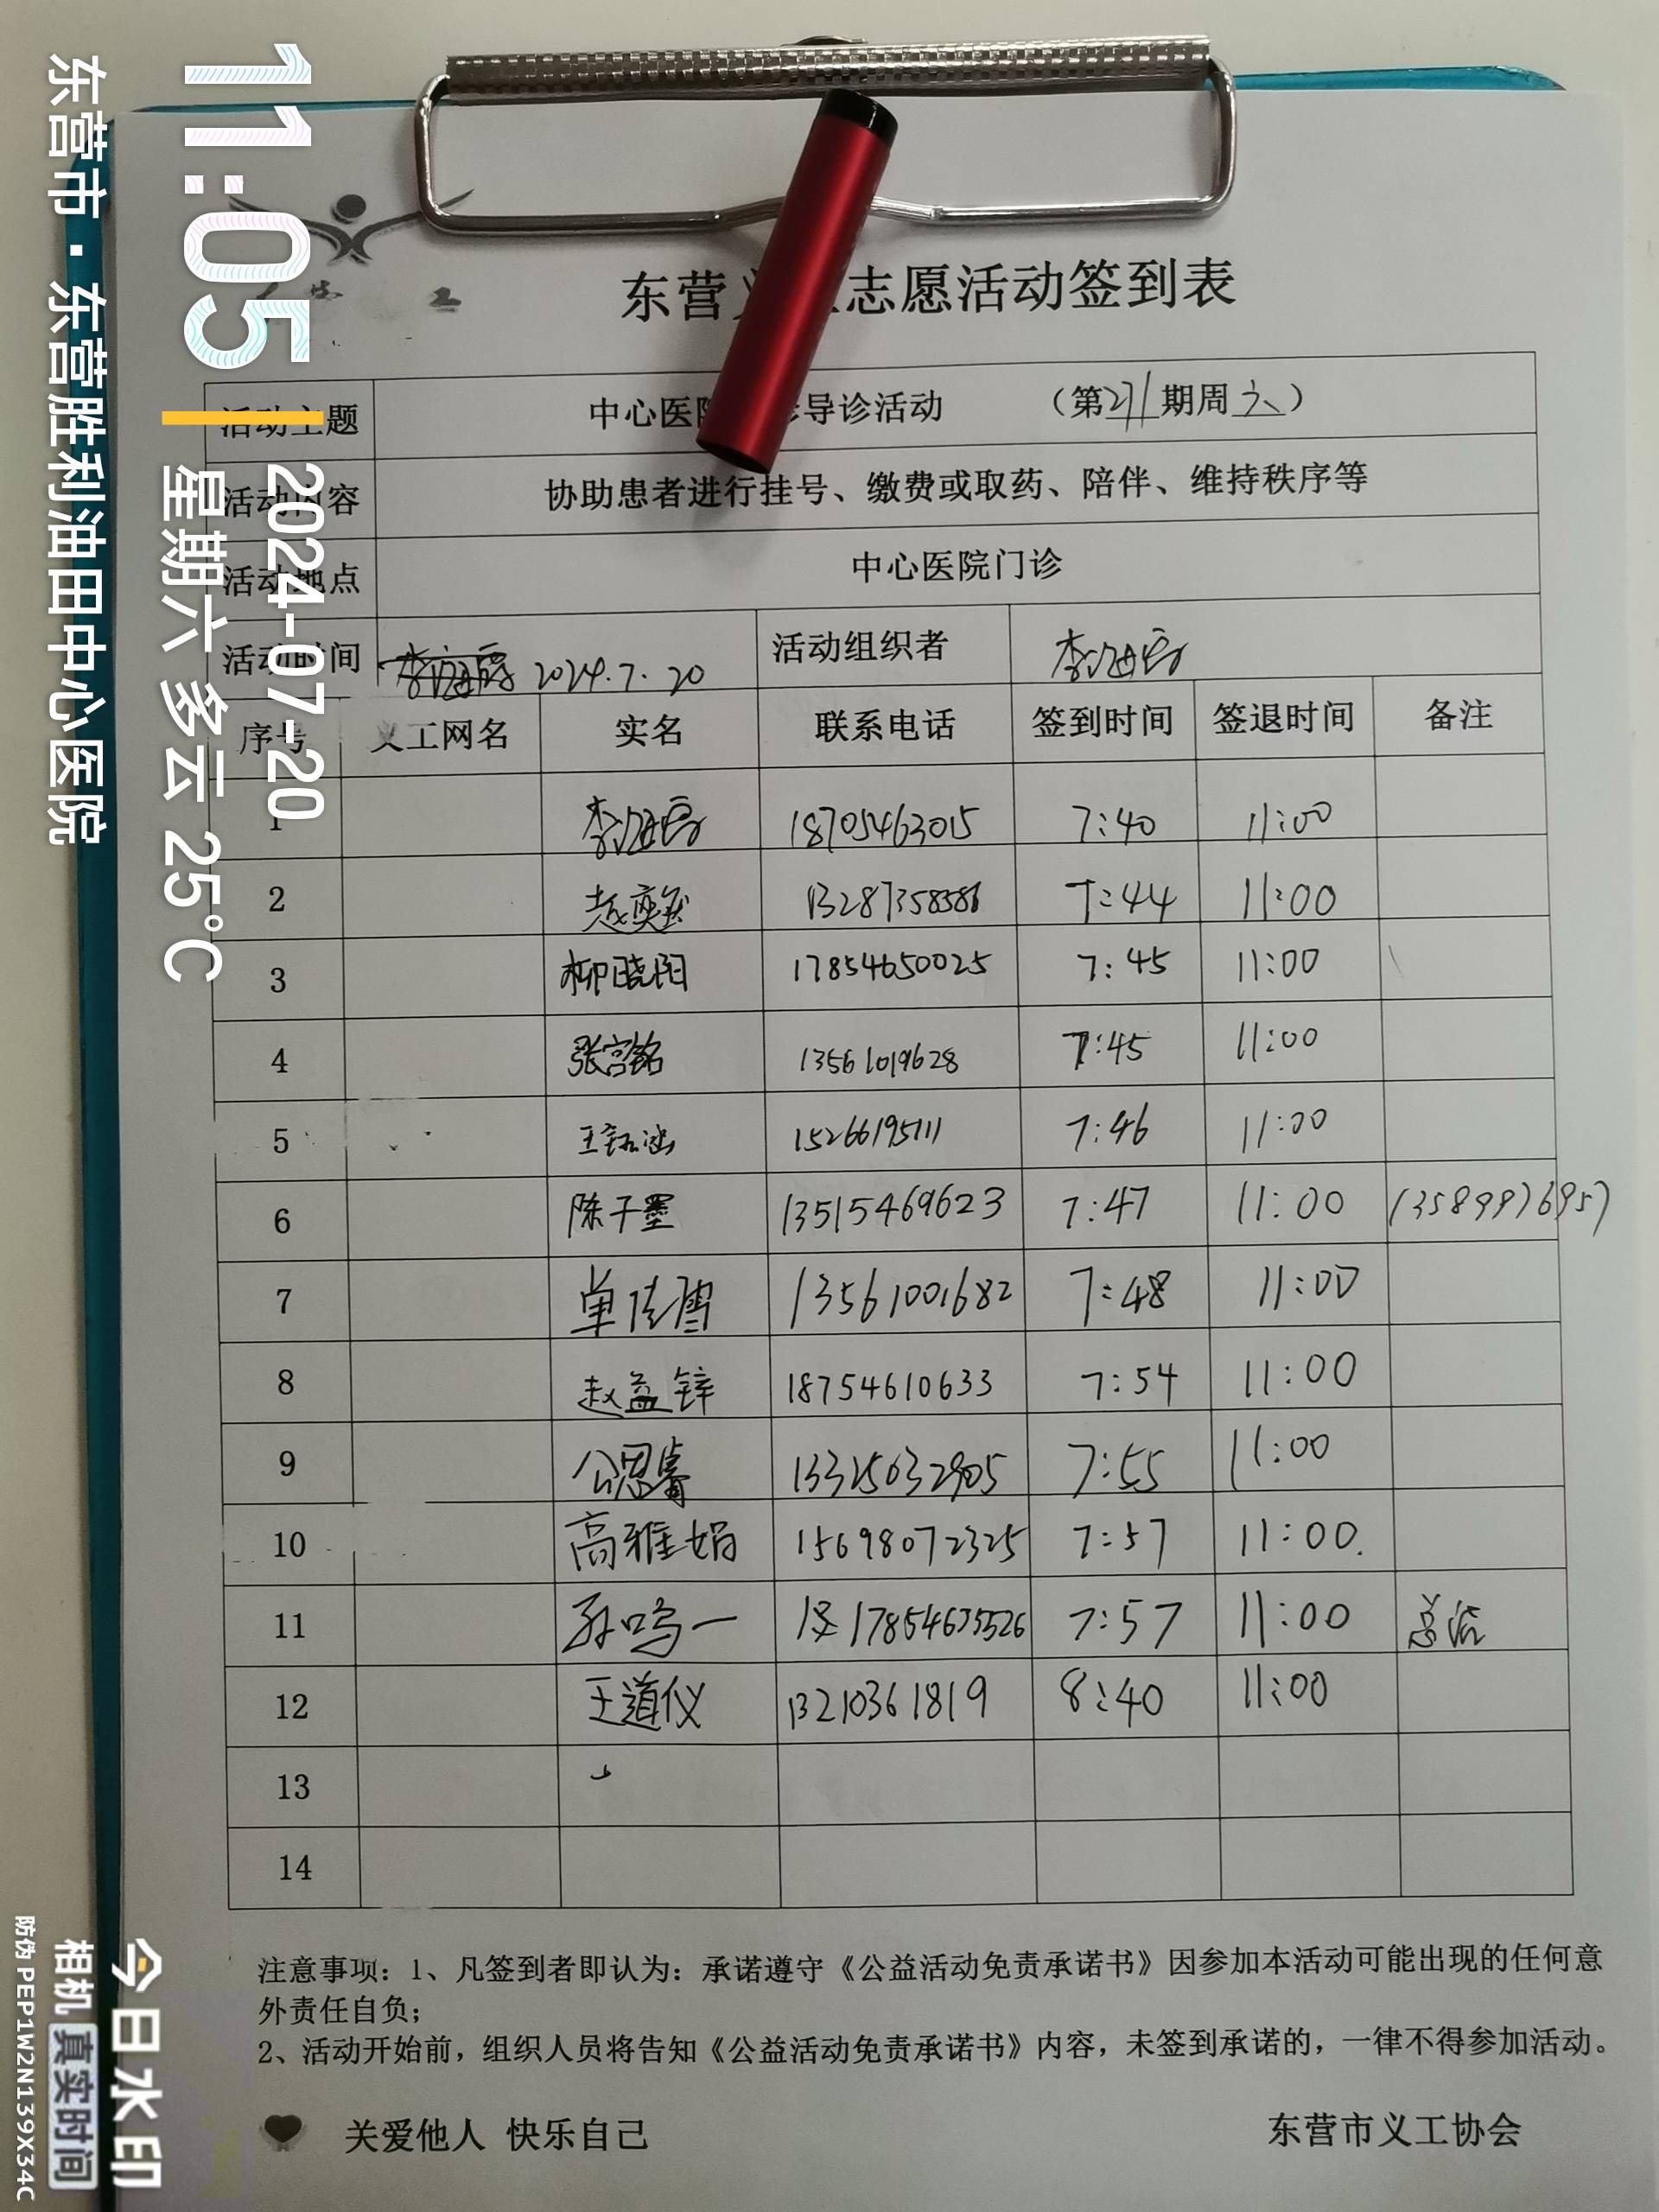 11:05
2024-07-20
星期六 多云 25°C
东营市·东营胜利油田中心医院
东营 志愿活动签到表
活动主题 中心医 导诊活动 (第 期周六)
活动内容 协助患者进行挂号、缴费或取药、陪伴、维持秩序等
活动地点 中心医院门诊
活动时间 2024.7.20 活动组织者
序号 义工网名 实名 联系电话 签到时间 签退时间 备注
1 18705463015 7:40 11:00
2 13287358586 7:44 11:00
3 柳晓阳 17854650025 7:45 11:00
4 张宫铭 13561019628 7:45 11:00
5 王钰涵 15266195111 7:46 11:00
6 陈子墨 13515469623 7:47 11:00 13589976957
7 单佳雪 13561001682 7:48 11:00
8 赵益锌 18754610633 7:54 11:00
9 公思睿 13325032905 7:55 11:00
10 高雅娟 15698072325 7:57 11:00.
11 孙鸣一 17854635526 7:57 11:00
12 王道仪 13210361819 8:40 11:00
13
14
注意事项：1、凡签到者即认为：承诺遵守《公益活动免责承诺书》因参加本活动可能出现的任何意
外责任自负；
2、活动开始前，组织人员将告知《公益活动免责承诺书》内容，未签到承诺的，一律不得参加活动。
关爱他人 快乐自己 东营市义工协会
今日水印
相机 真实时间
防伪 PEP1W2N139X34C